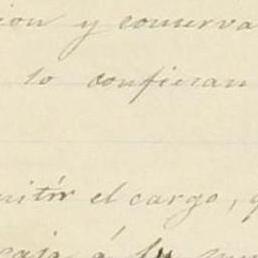 ion y conserva
lo confieran
mitir el cargo, q
caja á su